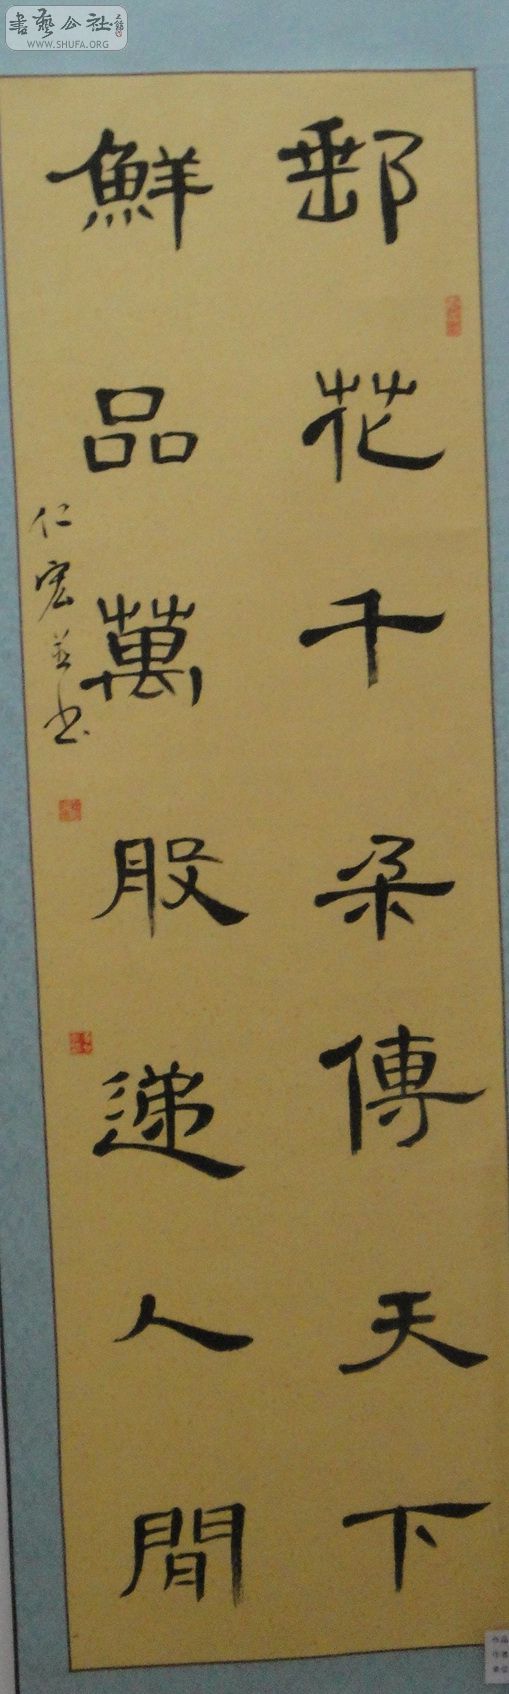 郵花千朵傳天下
鮮品萬股遞人間
仁宏並书
書藝公社
WWW.SHUFA.ORG